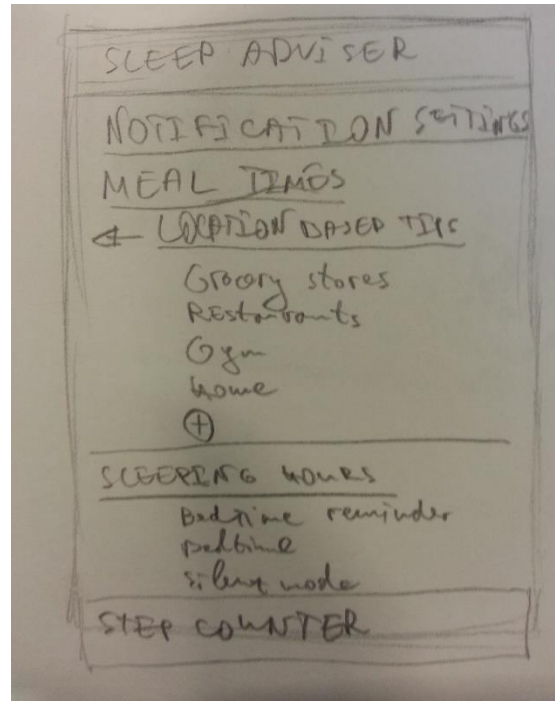 SLEEP ADVISER
NOTIFICATION SETTINGS
MEAL TIMES
LOCATION BASED TIPS
Grocery stores
REstaurants
Gym
Home
+
SLEEPING HOURS
Bedtime reminder
Bedtime
Silent mode
STEP COUNTER